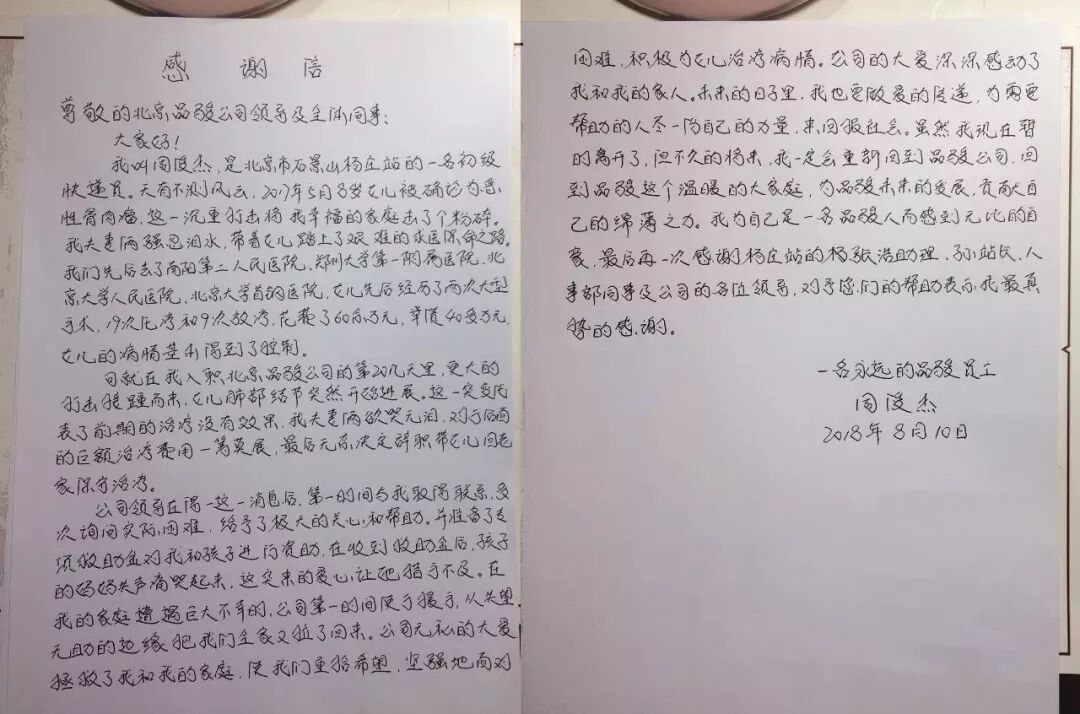 感谢信
尊敬的北京品骏公司领导及全体同事：
大家好！
我叫周俊杰，是北京市石景山杨庄站的一名初级
快递员。天有不测风云，2017年5月8岁女儿被确诊为恶
性骨肉瘤，这一沉重打击将我幸福的家庭击了个粉碎。
我夫妻俩强忍泪水，带着女儿踏上了艰难的求医保命之路。
我们先后去了南阳第二人民医院，郑州大学第一附属医院，北
京大学人民医院，北京大学首钢医院，女儿先后经历了两次大型
手术，19次化疗和9次放疗，花费了60余万元，举债40多万元，
女儿的病情基本得到了控制。
可就在我入职北京品骏公司的第20几天里，更大的
打击接踵而来，女儿肺部结节突然开始进展。这一突变代
表了前期的治疗没有效果，我夫妻俩欲哭无泪，对于后面
的巨额治疗费用一筹莫展，最后无奈决定辞职带女儿回老
家保守治疗。
公司领导在得一这一消息后，第一时间与我取得联系，多
次询问实际困难，给予了极大的关心和帮助。并准备了专
项救助金对我和孩子进行资助，在收到救助金后，孩子
的妈妈失声痛哭起来，这突来的爱心让她措手不及。在
我的家庭遭遇巨大不幸时，公司第一时间便于援手，从失望
无助的边缘把我们全家又拉了回来。公司无私的大爱
拯救了我和我的家庭，使我们重拾希望，坚强地面对
困难，积极为女儿治疗病情。公司的大爱深深感动了
我和我的家人。未来的日子里，我也要做爱的传递，为需要
帮助的人尽一份自己的力量，来回报社会。虽然我现在暂
时离开了，但不久的将来，我一定会重新回到品骏公司，回
到品骏这个温暖的大家庭，为品骏未来的发展，贡献自
己的绵薄之力。我为自己是一名品骏人而感到无比的自
豪，最后再一次感谢杨庄站的杨振浩助理、孙站长、人
事部同事及公司的各位领导，对于您们的帮助表示我最真
挚的感谢。
一名永远的品骏员工
周俊杰
2018年8月10日